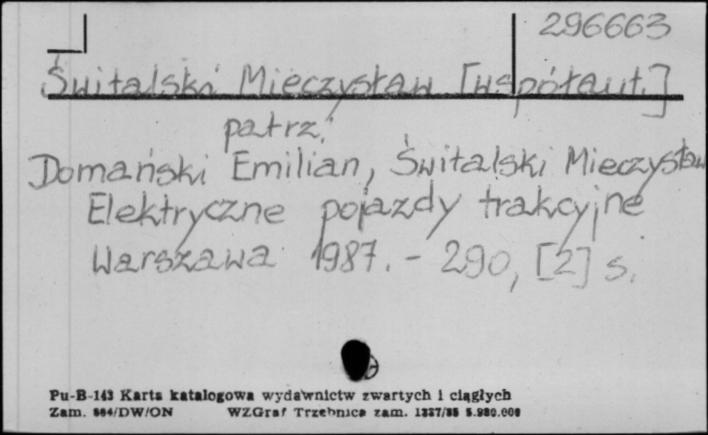 296663
Świtalski Mieczysław [współaut.]
patrz:
Domański Emilian, Świtalski Mieczysław
Elektryczne pojazdy trakcyjne
Warszawa 1987. - 290, [2] s.
Pu-B-143 Karta katalogowa wydawnictw zwartych i ciągłych
Zam. 564/DW/ON WZGraf Trzebnica zam. 1337/85 5.980.000